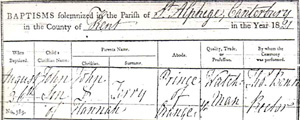 BAPTISMS solemnized in the Parish of St Alphege Canterbury
in the County of Kent in the Year 1821
When Baptized. Child's Christian Name. Parents Name. Christian. Surname. Abode. Quality, Trade, or Profession. By whom the Ceremony was performed.
August John John Prince Watch
26th Son & Terry of man Rector
of Hannah Orange
No.